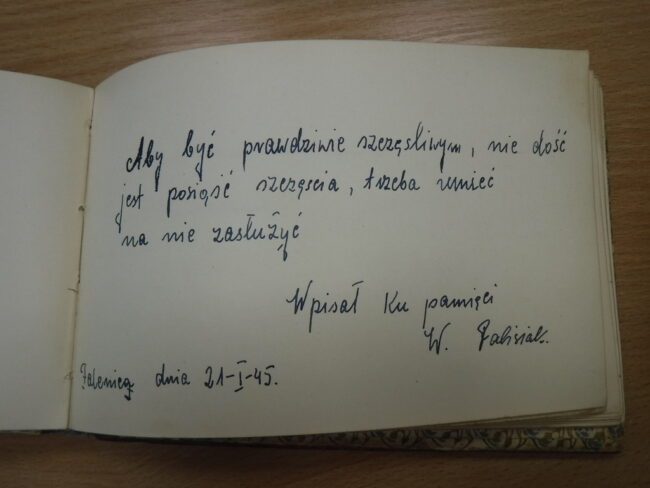 Aby być prawdziwie szczęśliwym, nie dość
jest posiąść szczęścia, trzeba umieć
na nie zasłużyć
Wpisał ku pamięci
W.
dnia 21-I-45.